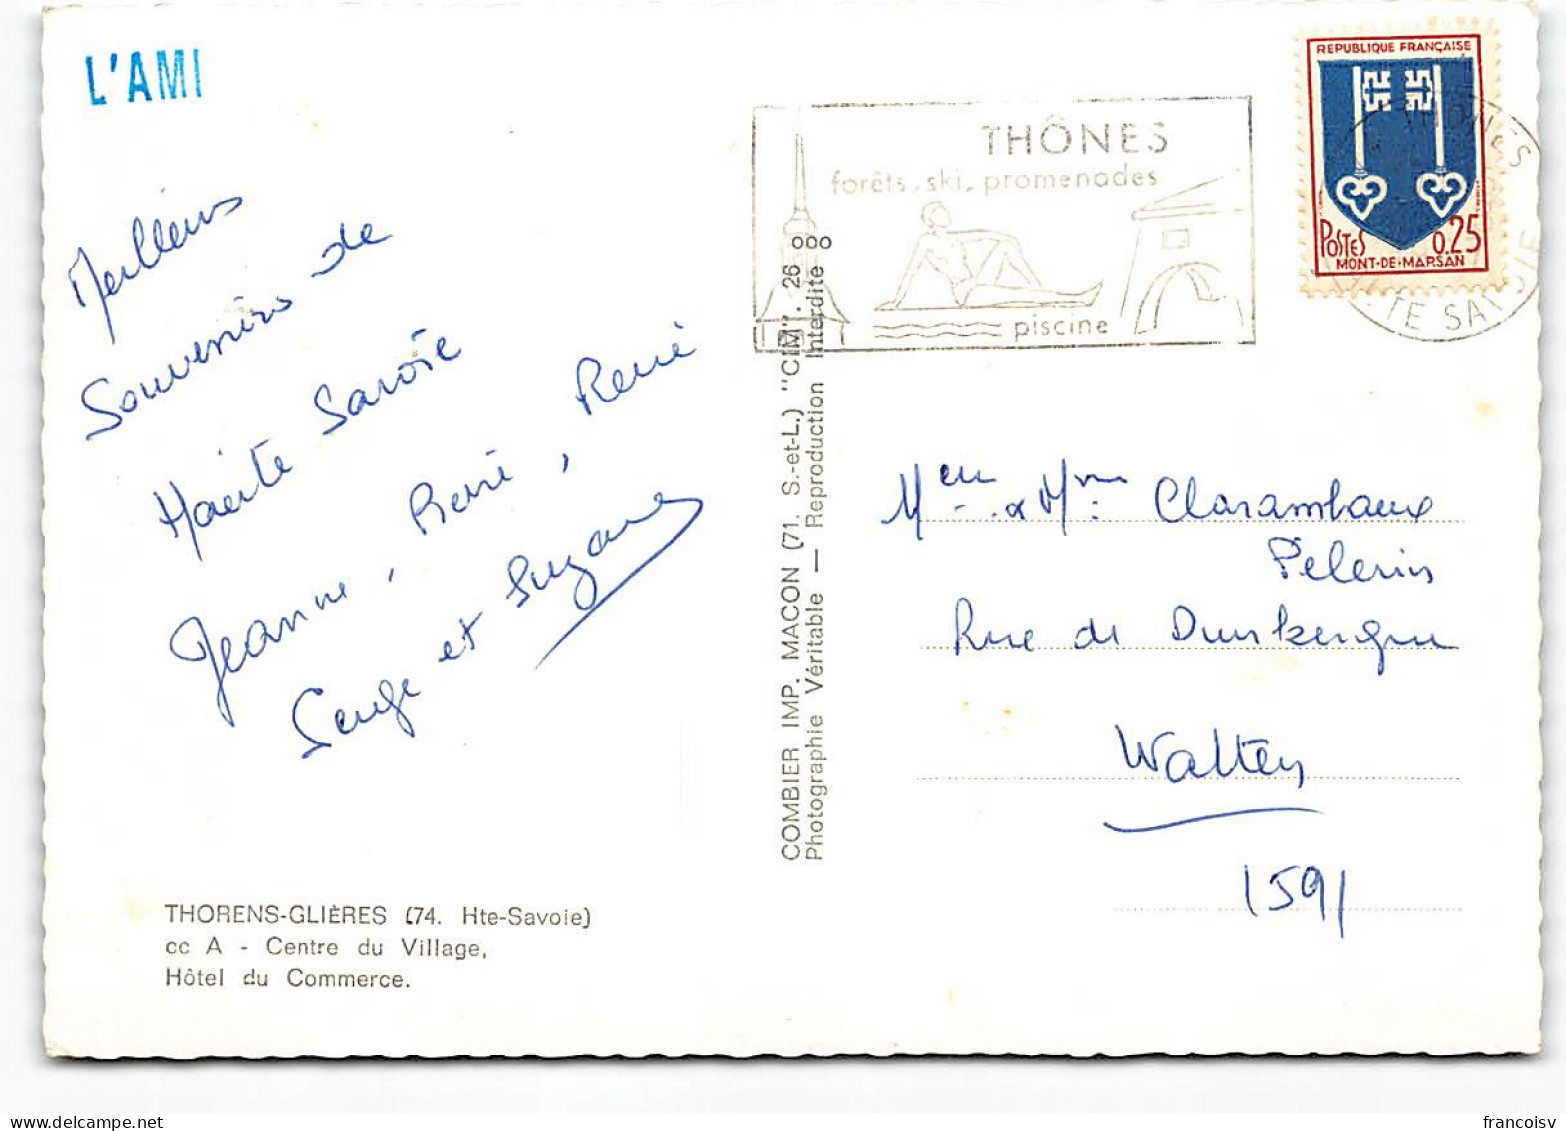 L'AMI
Meilleurs
Souvenirs de
Haute Savoie
Jeanne, René, René
Serge et Suzanne
THORENS-GLIÈRES (74. Hte-Savoie)
cc A - Centre du Village,
Hôtel du Commerce.
COMBIER IMP. MACON (71. S.-et-L.) "CIM". 26
Photographie Véritable — Reproduction Interdite
THÔNES
forêts, ski, promenades
piscine
REPUBLIQUE FRANÇAISE
POSTES 0.25
MONT-DE-MARSAN
THONES
HTE SAVOIE
Meu & Mme Clarambaux
Pelerin
Rue de Dunkerque
Watten
1591
francoisv